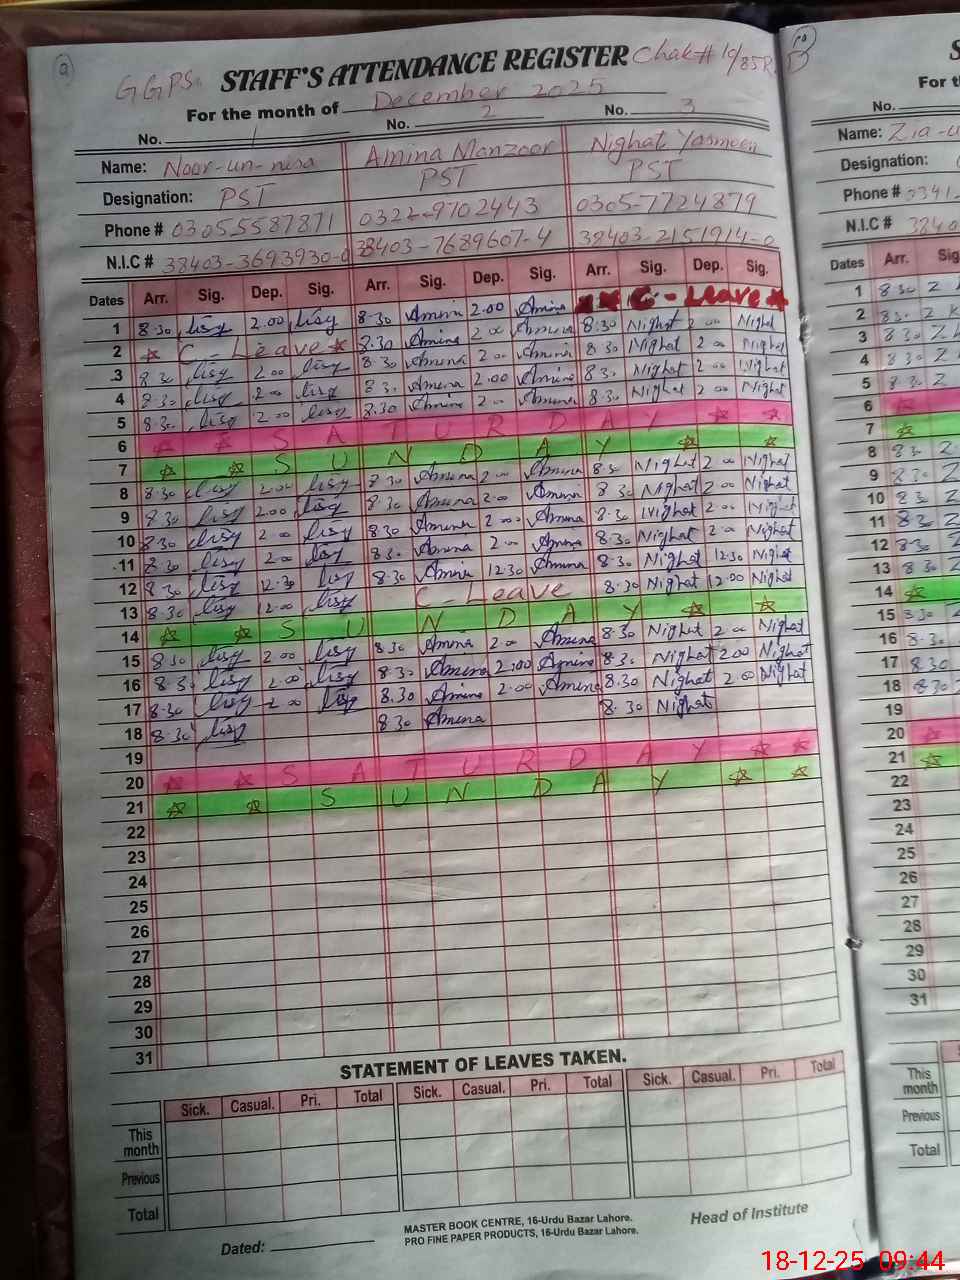 9
GGPS STAFF'S ATTENDANCE REGISTER Chak# 10/85R
For the month of December 2025
No. 1 No. 2 No. 3
Name: Noor-un-nisa Amina Manzoor Nighat Yasmeen
Designation: PST PST PST
Phone # 03055587871 0322-9702443 0305-7724879
N.I.C # 38403-3693930-0 38403-7689607-4 38403-2151914-0
Dates Arr. Sig. Dep. Sig. Arr. Sig. Dep. Sig. Arr. Sig. Dep. Sig.
1 8:30 2.00 8:30 Amina 2.00 Amina C-Leave
2 C-Leave 8:30 Amina 2 00 Amina 8:30 Nighat 2 00 Nighat
3 8:30 2.00 8:30 Amina 2.00 Amina 8:30 Nighat 2 00 Nighat
4 8:30 2.00 8:30 Amina 2.00 Amina 8:30 Nighat 2 00 Nighat
5 8:30 2.00 8:30 Amina 2.00 Amina 8:30 Nighat 2 00 Nighat
6 SATURDAY
7 SUNDAY
8 8:30 2.00 8:30 Amina 2.00 Amina 8:30 Nighat 2 00 Nighat
9 8:30 2.00 8:30 Amina 2.00 Amina 8:30 Nighat 2 00 Nighat
10 8:30 2.00 8:30 Amina 2.00 Amina 8:30 Nighat 2 00 Nighat
11 8:30 2.00 8:30 Amina 2.00 Amina 8:30 Nighat 2 00 Nighat
12 8:30 12:30 8:30 Amina 12:30 Amina 8:30 Nighat 12:30 Nighat
13 8:30 12:00 C-Leave 8:30 Nighat 12:00 Nighat
14 SUNDAY
15 8:30 2.00 8:30 Amina 2.00 Amina 8:30 Nighat 2 00 Nighat
16 8:30 2.00 8:30 Amina 2:00 Amina 8:30 Nighat 2.00 Nighat
17 8:30 2.00 8:30 Amina 2.00 Amina 8:30 Nighat 2.00 Nighat
18 8:30 8:30 Amina 8:30 Nighat
19
20 SATURDAY
21 SUNDAY
22
23
24
25
26
27
28
29
30
31
STATEMENT OF LEAVES TAKEN.
Sick. Casual. Pri. Total Sick. Casual. Pri. Total Sick. Casual. Pri. Total
This month
Previous
Total
Dated:
MASTER BOOK CENTRE, 16-Urdu Bazar Lahore.
PRO FINE PAPER PRODUCTS, 16-Urdu Bazar Lahore.
Head of Institute
10
For th
No.
Name: Zia-u
Designation:
Phone # 0341-
N.I.C # 3840
Dates Arr. Sig
1 8 30
2 8 30
3 8 30
4 8 30
5 8 30
6
7
8 8 30
9 8 30
10 8 30
11 8 30
12 8 30
13 8 30
14
15 8 30
16 8 30
17 8 30
18 8 30
19
20
21
22
23
24
25
26
27
28
29
30
31
This month
Previous
Total
18-12-25 09:44